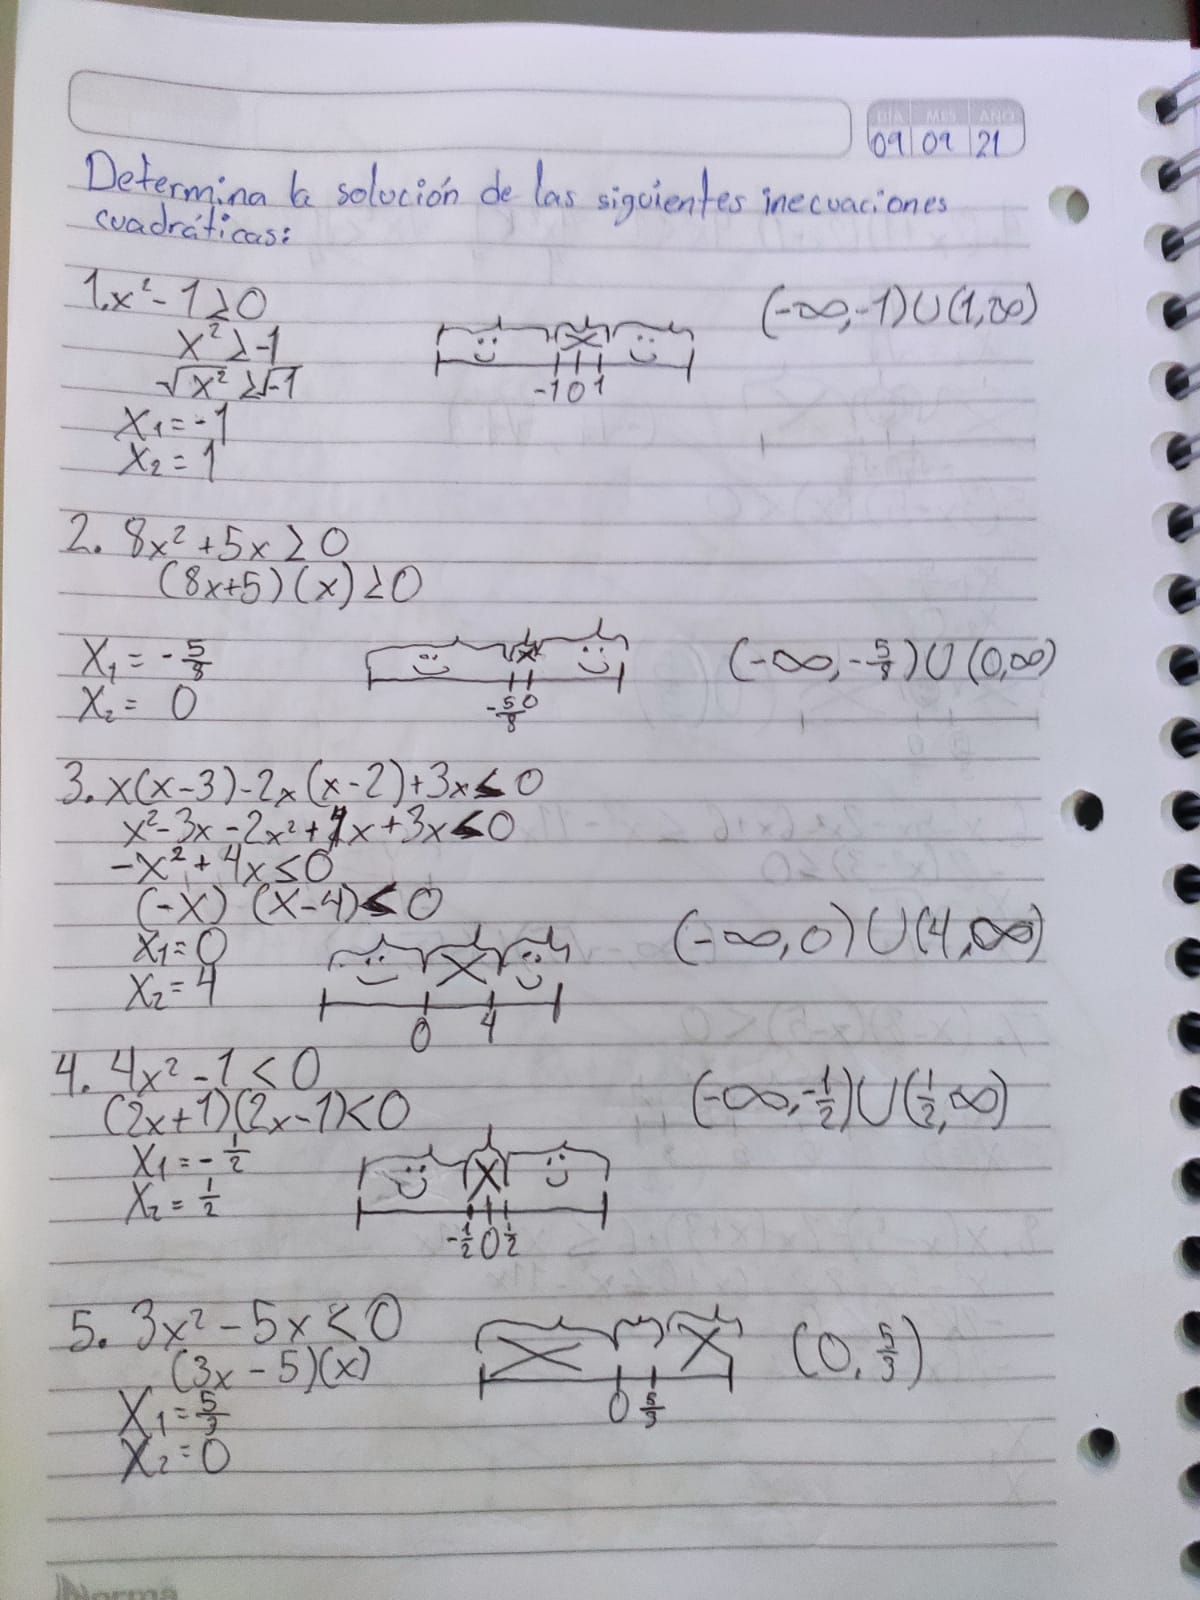 DÍA MES AÑO
09 09 21
Determina la solución de las siguientes inecuaciones
cuadráticas:
1. x² - 1 ≥ 0
(-∞, -1) ∪ (1, ∞)
x² ≥ -1
√x² ≥ √-1
-1 0 1
X₁ = -1
X₂ = 1
2. 8x² + 5x ≥ 0
(8x+5)(x) ≥ 0
X₁ = -5/8
(-∞, -5/8) ∪ (0, ∞)
X₂ = 0
-5/8 0
3. x(x-3) - 2x(x-2) + 3x ≤ 0
x² - 3x - 2x² + 4x + 3x ≤ 0
-x² + 4x ≤ 0
(-x) (x-4) ≤ 0
(-∞, 0) ∪ (4, ∞)
X₁ = 0
X₂ = 4
0 4
4. 4x² - 1 < 0
(-∞, -1/2) ∪ (1/2, ∞)
(2x+1)(2x-1) < 0
X₁ = -1/2
X₂ = 1/2
-1/2 0 1/2
5. 3x² - 5x < 0
(0, 5/3)
(3x - 5)(x)
X₁ = 5/3
0 5/3
X₂ = 0
Norma